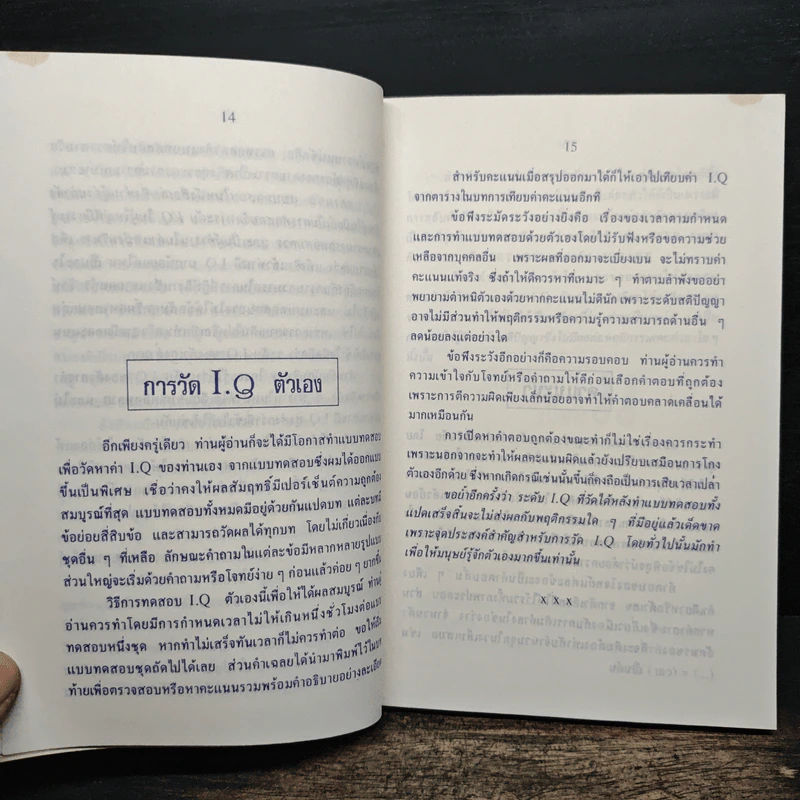 14
การวัด I.Q ตัวเอง
อีกเพียงครู่เดียว ท่านผู้อ่านก็จะได้มีโอกาสทำแบบทดสอบ
เพื่อวัดหาค่า I.Q ของท่านเอง จากแบบทดสอบซึ่งผมได้ออกแบบ
ขึ้นเป็นพิเศษ เชื่อว่าคงให้ผลสัมฤทธิ์มีเปอร์เซ็นต์ความถูกต้อง
สมบูรณ์ที่สุด แบบทดสอบทั้งหมดมีอยู่ด้วยกันแปดบท แต่ละบทมี
ข้อย่อยสี่สิบข้อ และสามารถวัดผลได้ทุกบท โดยไม่เกี่ยวเนื่องกับ
ชุดอื่น ๆ ที่เหลือ ลักษณะคำถามในแต่ละข้อมีหลากหลายรูปแบบ
ส่วนใหญ่จะเริ่มด้วยคำถามหรือโจทย์ง่าย ๆ ก่อนแล้วค่อย ๆ ยากขึ้น
วิธีการทดสอบ I.Q ตัวเองนี้เพื่อให้ได้ผลสมบูรณ์ ท่านผู้
อ่านควรทำโดยมีการกำหนดเวลาไม่ให้เกินหนึ่งชั่วโมงต่อแบบ
ทดสอบหนึ่งชุด หากทำไม่เสร็จทันเวลาก็ไม่ควรทำต่อ ขอให้ถือ
แบบทดสอบชุดถัดไปได้เลย ส่วนคำเฉลยได้นำมาพิมพ์ไว้ใน
ท้ายเพื่อตรวจสอบหรือหาคะแนนรวมพร้อมคำอธิบายอย่างละเอียด
15
สำหรับคะแนนเมื่อสรุปออกมาได้ก็ให้เอาไปเทียบค่า I.Q
จากตารางในบทการเทียบค่าคะแนนอีกที
ข้อพึงระมัดระวังอย่างยิ่งคือ เรื่องของเวลาตามกำหนด
และการทำแบบทดสอบด้วยตัวเองโดยไม่รับฟังหรือขอความช่วย
เหลือจากบุคคลอื่น เพราะผลที่ออกมาจะเบี่ยงเบน จะไม่ทราบค่า
คะแนนแท้จริง ซึ่งถ้าให้ดีควรหาที่เหมาะ ๆ ทำตามลำพังขออย่า
พยายามตำหนิตัวเองด้วยหากคะแนนไม่ดีนัก เพราะระดับสติปัญญา
อาจไม่มีส่วนทำให้พฤติกรรมหรือความรู้ความสามารถด้านอื่น ๆ
ลดน้อยลงแต่อย่างใด
ข้อพึงระวังอีกอย่างก็คือความรอบคอบ ท่านผู้อ่านควรทำ
ความเข้าใจกับโจทย์หรือคำถามให้ดีก่อนเลือกคำตอบที่ถูกต้อง
เพราะการตีความผิดเพียงเล็กน้อยอาจทำให้คำตอบคลาดเคลื่อนได้
มากเหมือนกัน
การเปิดหาคำตอบถูกต้องขณะทำก็ไม่ใช่เรื่องควรกระทำ
เพราะนอกจากจะทำให้ผลคะแนนผิดแล้วยังเปรียบเสมือนการโกง
ตัวเองอีกด้วย ซึ่งหากเกิดกรณีเช่นนั้นขึ้นก็คงถือเป็นการเสียเวลาเปล่า
ขอย้ำอีกครั้งว่า ระดับ I.Q ที่วัดได้หลังทำแบบทดสอบทั้ง
แปดเสร็จสิ้นจะไม่ส่งผลกับพฤติกรรมใด ๆ ที่มีอยู่แล้วเด็ดขาด
เพราะจุดประสงค์สำคัญสำหรับการวัด I.Q โดยทั่วไปนั้นมักทำ
เพื่อให้มนุษย์รู้จักตัวเองมากขึ้นเท่านั้น
x x x